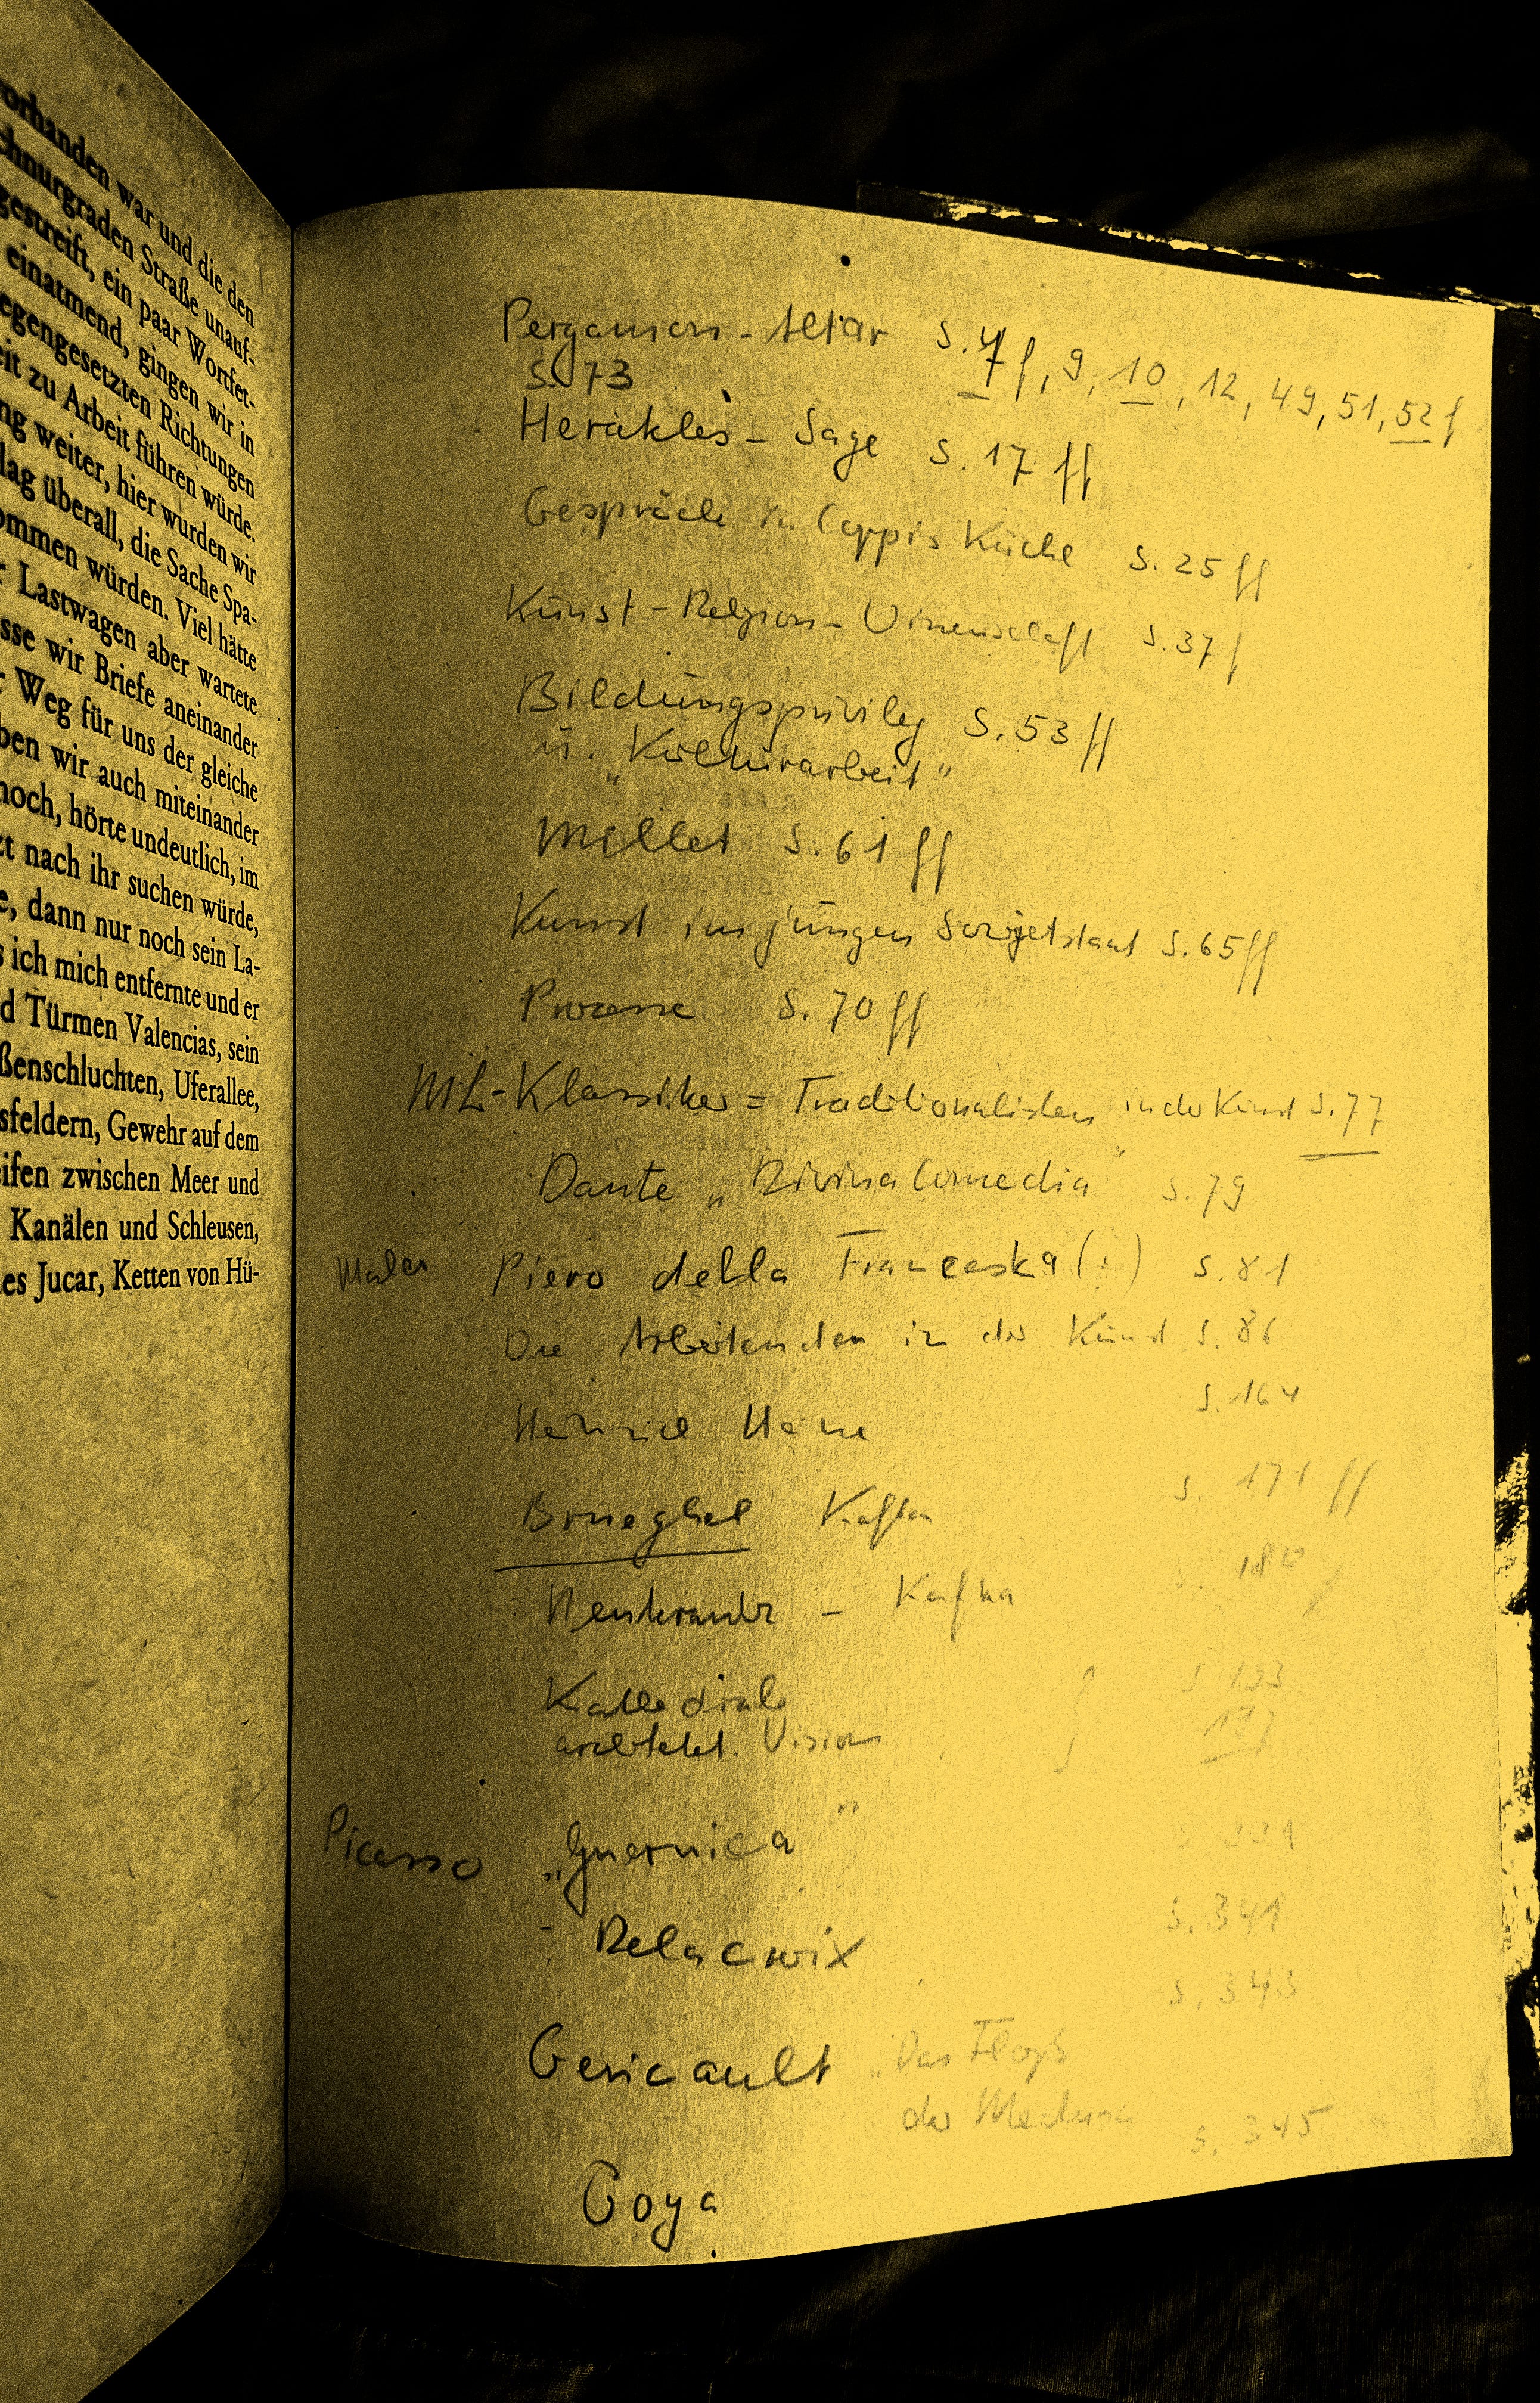 vorhanden war und die den
chnurgraden Straße unauf-
gestreift, ein paar Wortfet-
einatmend, gingen wir in
egengesetzten Richtungen
eit zu Arbeit führen würde.
ng weiter, hier wurden wir
lag überall, die Sache Spa-
ommen würden. Viel hätte
r Lastwagen aber wartete
sse wir Briefe aneinander
r Weg für uns der gleiche
ben wir auch miteinander
noch, hörte undeutlich, im
zt nach ihr suchen würde,
e, dann nur noch sein La-
s ich mich entfernte und er
d Türmen Valencias, sein
ßenschluchten, Uferallee,
sfeldern, Gewehr auf dem
eifen zwischen Meer und
Kanälen und Schleusen,
es Jucar, Ketten von Hü-
Pergamon-Altar S. 7 f, 9, 10, 12, 49, 51, 52 f
S. 73
Herakles-Sage S. 17 ff
Gespräch in Coppis Küche S. 25 ff
Kunst-Religion-Wissenschaft S. 37 f
Bildungsprivileg S. 53 ff
u. „Kulturarbeit“
Millet S. 61 ff
Kunst im jungen Sowjetstaat S. 65 ff
Prozesse S. 70 ff
ML-Klassiker = Traditionalisten in der Kunst S. 77
Dante „Divina Comedia“ S. 79
Maler Piero della Franceska (!) S. 81
Die Arbeitenden in der Kunst S. 86
Heinrich Heine S. 164
Brueghel Kafka S. 171 ff
Rembrandt - Kafka S. 180
Kathedrale S. 193
architekt. Vision 197
Picasso „Guernica“ S. 331
- Delacroix S. 341
S. 343
Gericault „Das Floß
der Medusa S. 345
Goya